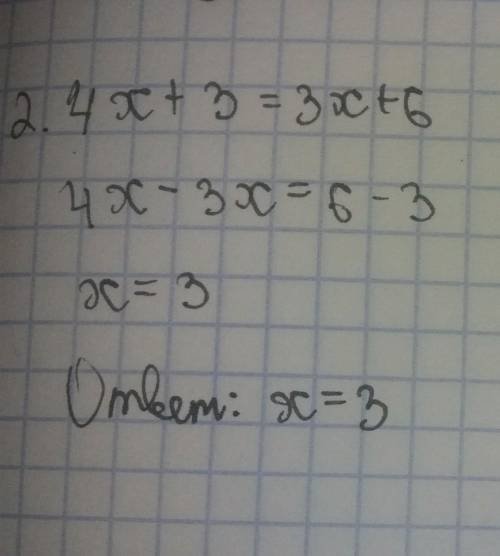 2. 4x + 3 = 3x + 6
4x - 3x = 6 - 3
x = 3
Ответ: x = 3